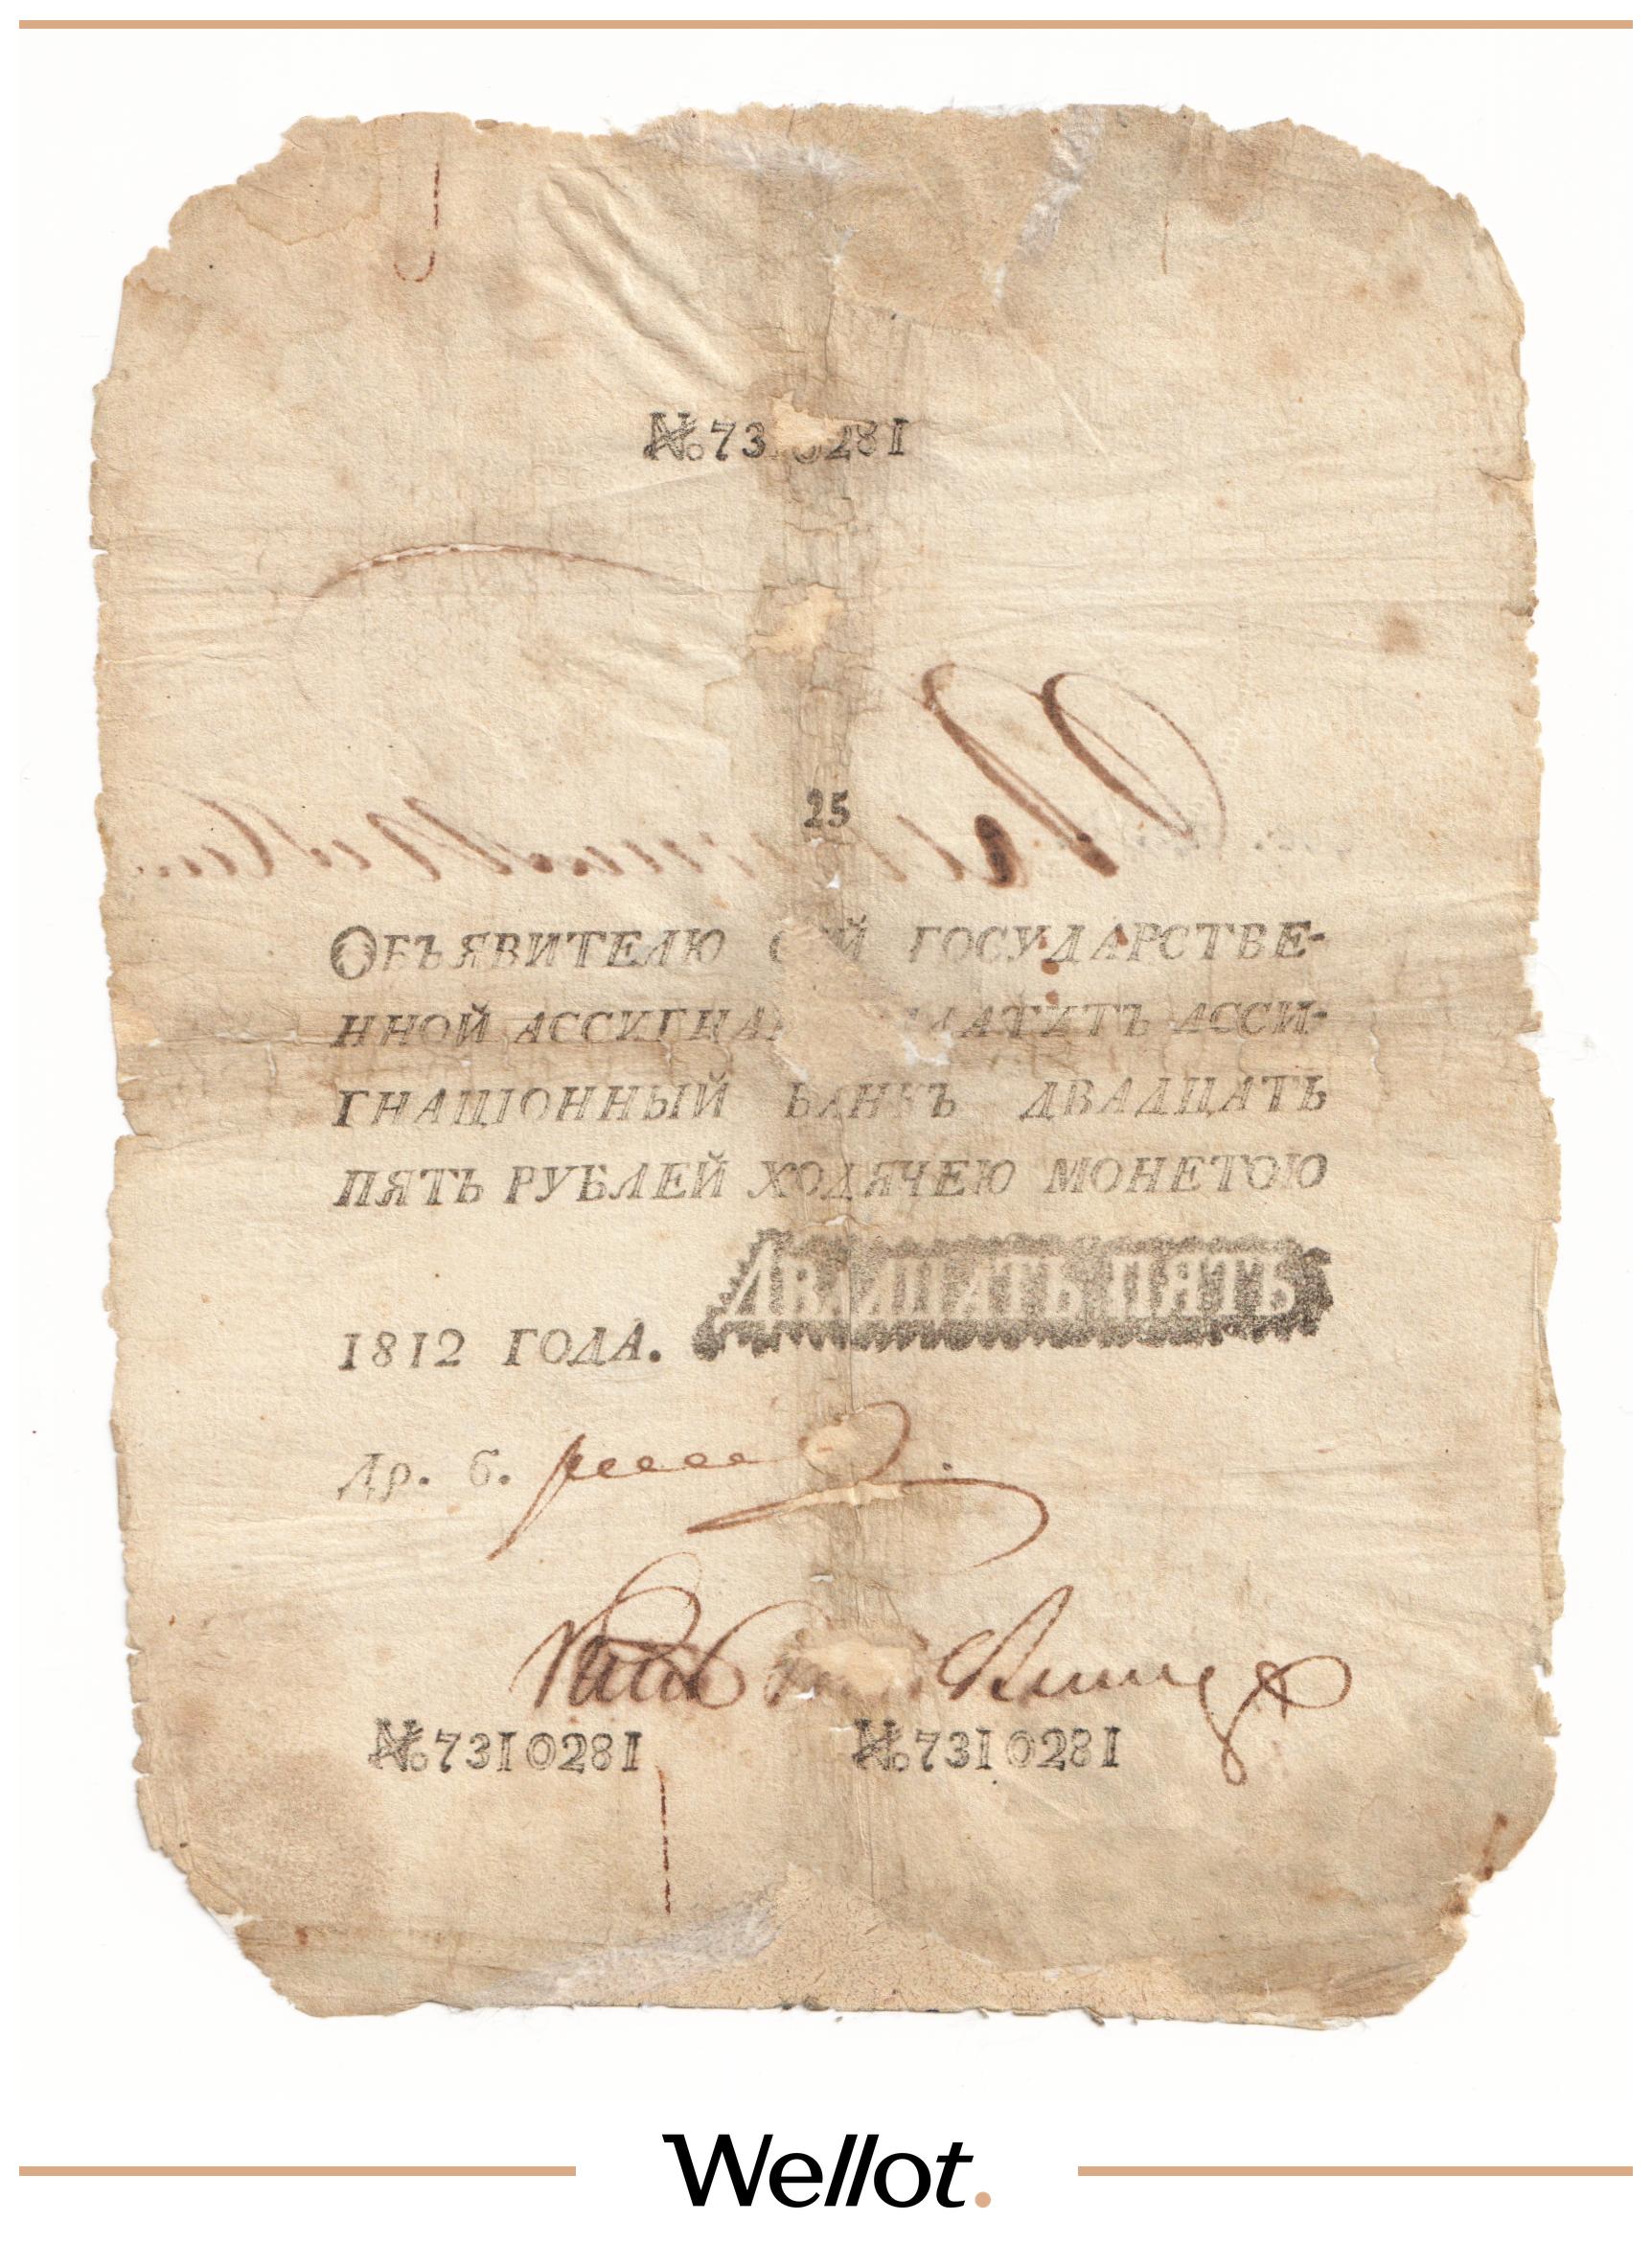 № 7310281
25
ОБЪЯВИТЕЛЮ СЕЙ ГОСУДАРСТВЕ-
ННОЙ АССИГНАЦ ПЛАТИТЪ АССИ-
ГНАЦІОННЫЙ БАНКЪ ДВАДЦАТЬ
ПЯТЬ РУБЛЕЙ ХОДЯЧЕЮ МОНЕТОЮ
ДВАДЦАТЬ ПЯТЬ
1812 ГОДА.
Др. б.
№ 7310281 № 7310281
Wellot.